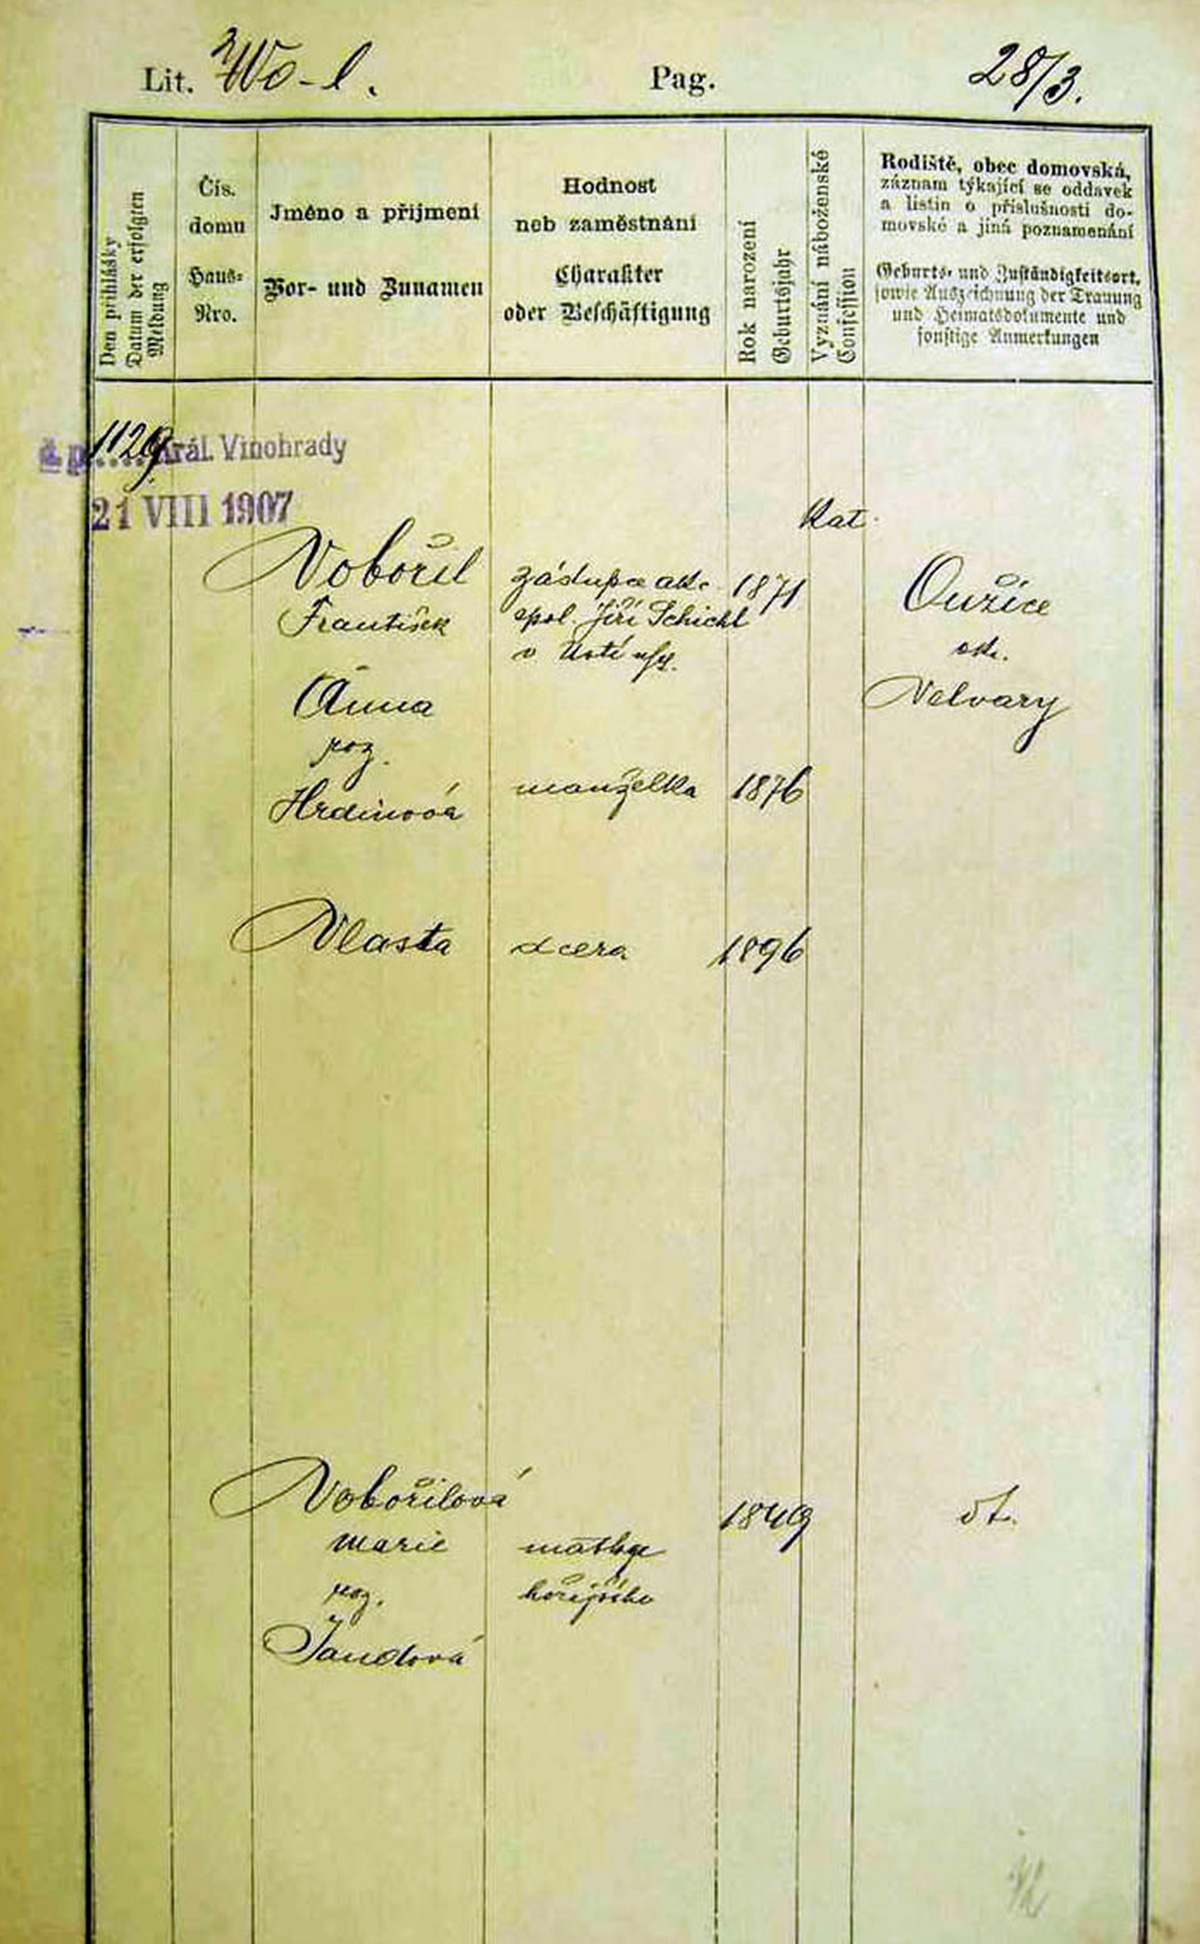 Lit. Wo-l. Pag. 28/3.
Den přihlášky
Datum der erfolgten
Meldung
Čís.
domu
Haus-
Nro.
Jméno a příjmení
Vor- und Zunamen
Hodnost
neb zaměstnání
Charakter
oder Beschäftigung
Rok narození
Geburtsjahr
Vyznání náboženské
Confession
Rodiště, obec domovská,
záznam týkající se oddavek
a listin o příslušnosti do-
movské a jiná poznamenání
Geburts- und Zuständigkeitsort,
sowie Auszeichnung der Trauung
und Heimatsdokumente und
sonstige Anmerkungen
č.p. 1129 Král. Vinohrady
21 VIII 1907
Kat.
Vobořil zástupce akc. 1871 Oužice
František spol. Jiří Schichl
v Ústí n/L. okr.
Anna Velvary
roz.
Hrdinová manželka 1876
Vlasta dcera 1896
Vobořilová 1849 dt.
Marie matka
roz. hořejšího
Jandová